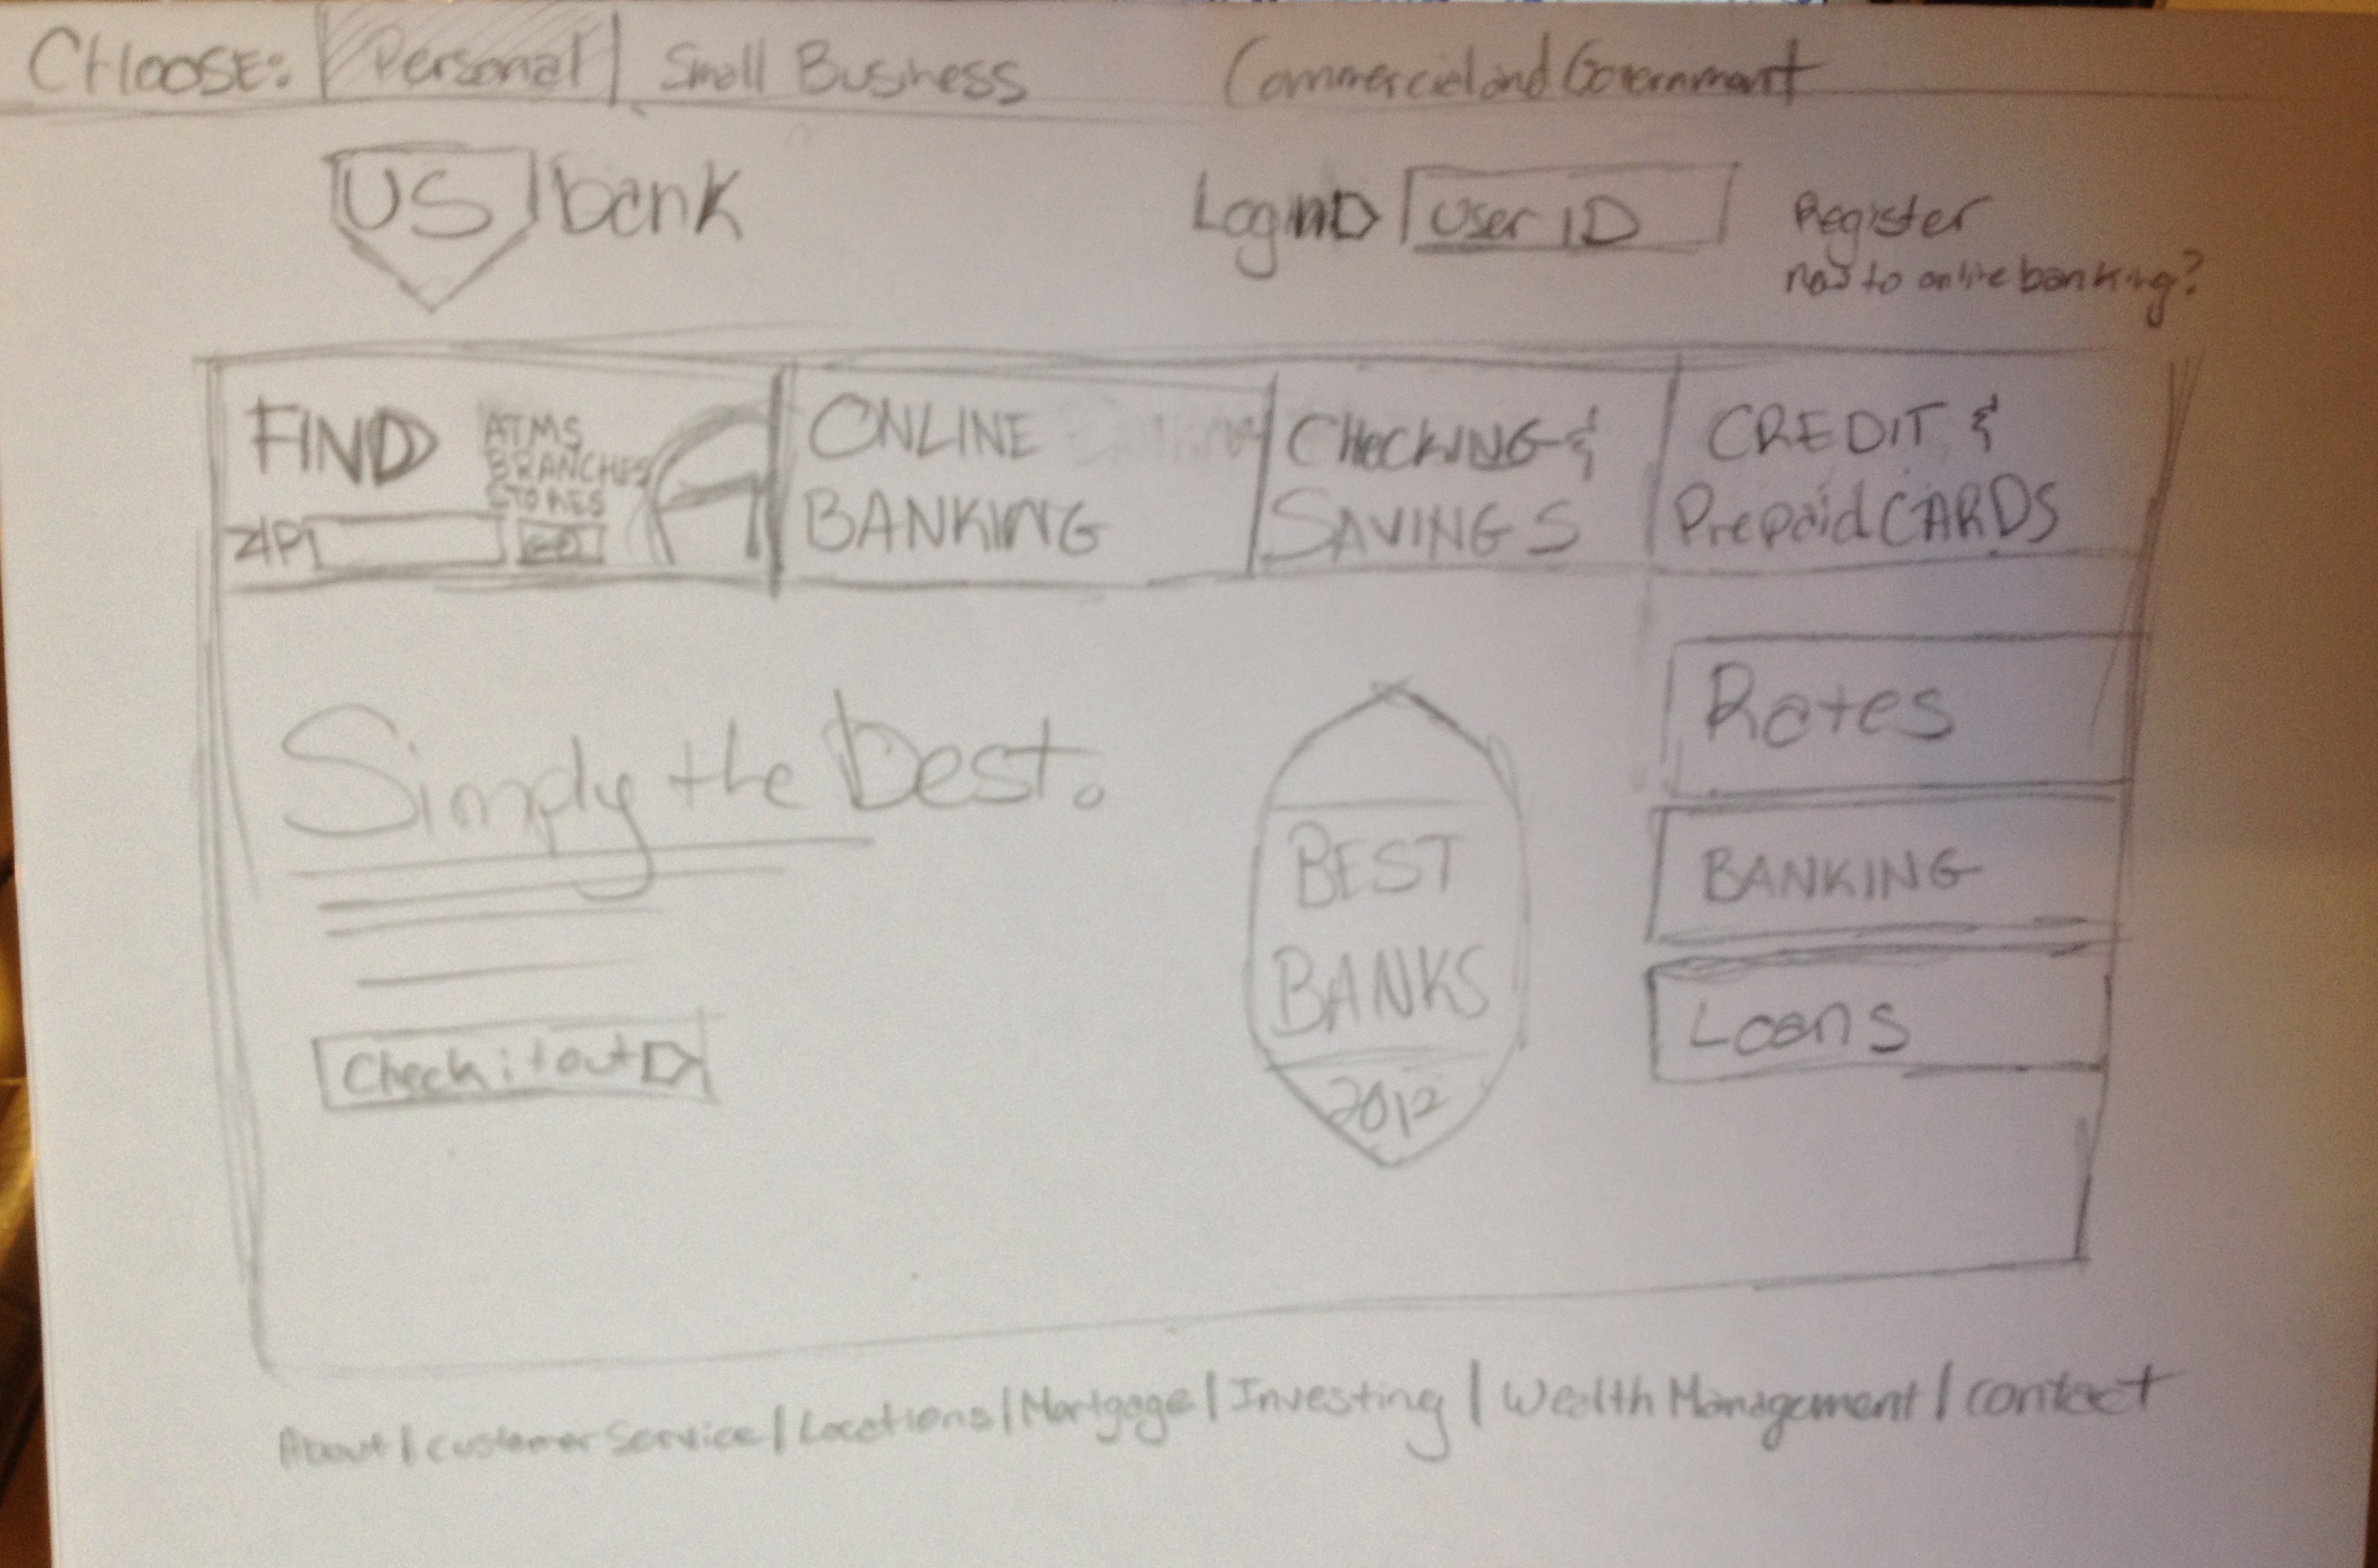 CHOOSE: Personal Small Business Commercial and Government
US bank
Login User ID Register
to online banking?
FIND
ATMS
BRANCHES
STORES
ZIP GO
ONLINE
BANKING
CHECKING &
SAVINGS
CREDIT &
Prepaid CARDS
Simply the best.
Check it out
BEST
BANKS
2012
Rates
BANKING
Loans
About | Customer Service | Locations | Mortgage | Investing | Wealth Management | contact